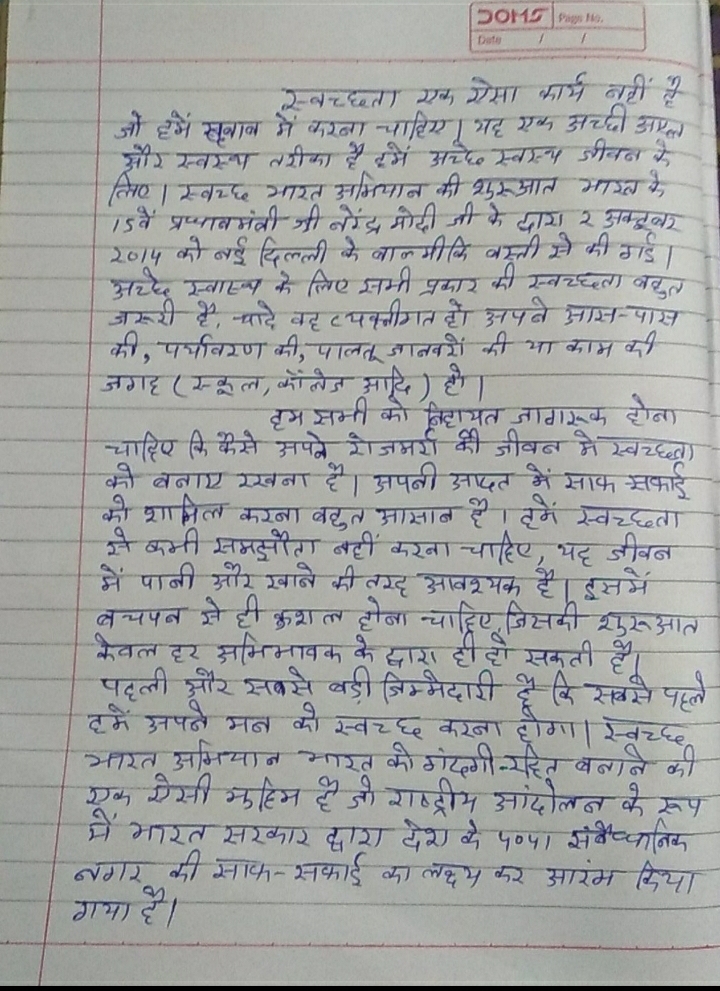 DOMS
Page No.
Date / /
स्वच्छता एक ऐसा कार्य नहीं है
जो हमें में करना चाहिए। यह एक अच्छी
और स्वस्थ्य तरीका है हमें अच्छे स्वस्थ्य जीवन के
लिए। स्वच्छ भारत अभियान की शुरूआत भारत के
15वें प्रधानमंत्री श्री नरेंद्र मोदी जी के द्वारा 2 अक्टूबर
2014 को नई दिल्ली के बाल्मीकि वस्ती से की गई।
अच्छे स्वास्थ्य के लिए सभी प्रकार की स्वच्छता बहुत
जरूरी है, चाहे वह व्यक्तीगत हो अपने आस-पास
की, पर्यावरण की, पालतू जानवरों की या काम की
जगह (स्कूल, कॉलेज आदि) हो।
हम सभी को निहायत जागरूक होना
चाहिए कि कैसे अपने रोजमर्रा की जीवन में स्वच्छता
को बनाए रखना है। अपनी आदत में साफ-सफाई
को शामिल करना बहुत आसान है। हमें स्वच्छता
से कभी समझौता नहीं करना चाहिए, यह जीवन
में पानी और खाने की तरह आवश्यक है। इसमें
बचपन से ही कुशल होना चाहिए, जिसकी शुरूआत
केवल हर अभिभावक के द्वारा ही हो सकती है।
पहली और सबसे बड़ी जिम्मेदारी है कि सबसे पहले
हमें अपने मन को स्वच्छ करना होगा। स्वच्छ
भारत अभियान भारत को गंदगी-रहित बनाने की
एक ऐसी मुहिम है जो राष्ट्रीय आंदोलन के रूप
में भारत सरकार द्वारा देश के 4041 संवैधानिक
नगर की साफ-सफाई का लक्ष्य कर आरंभ किया
गया है।